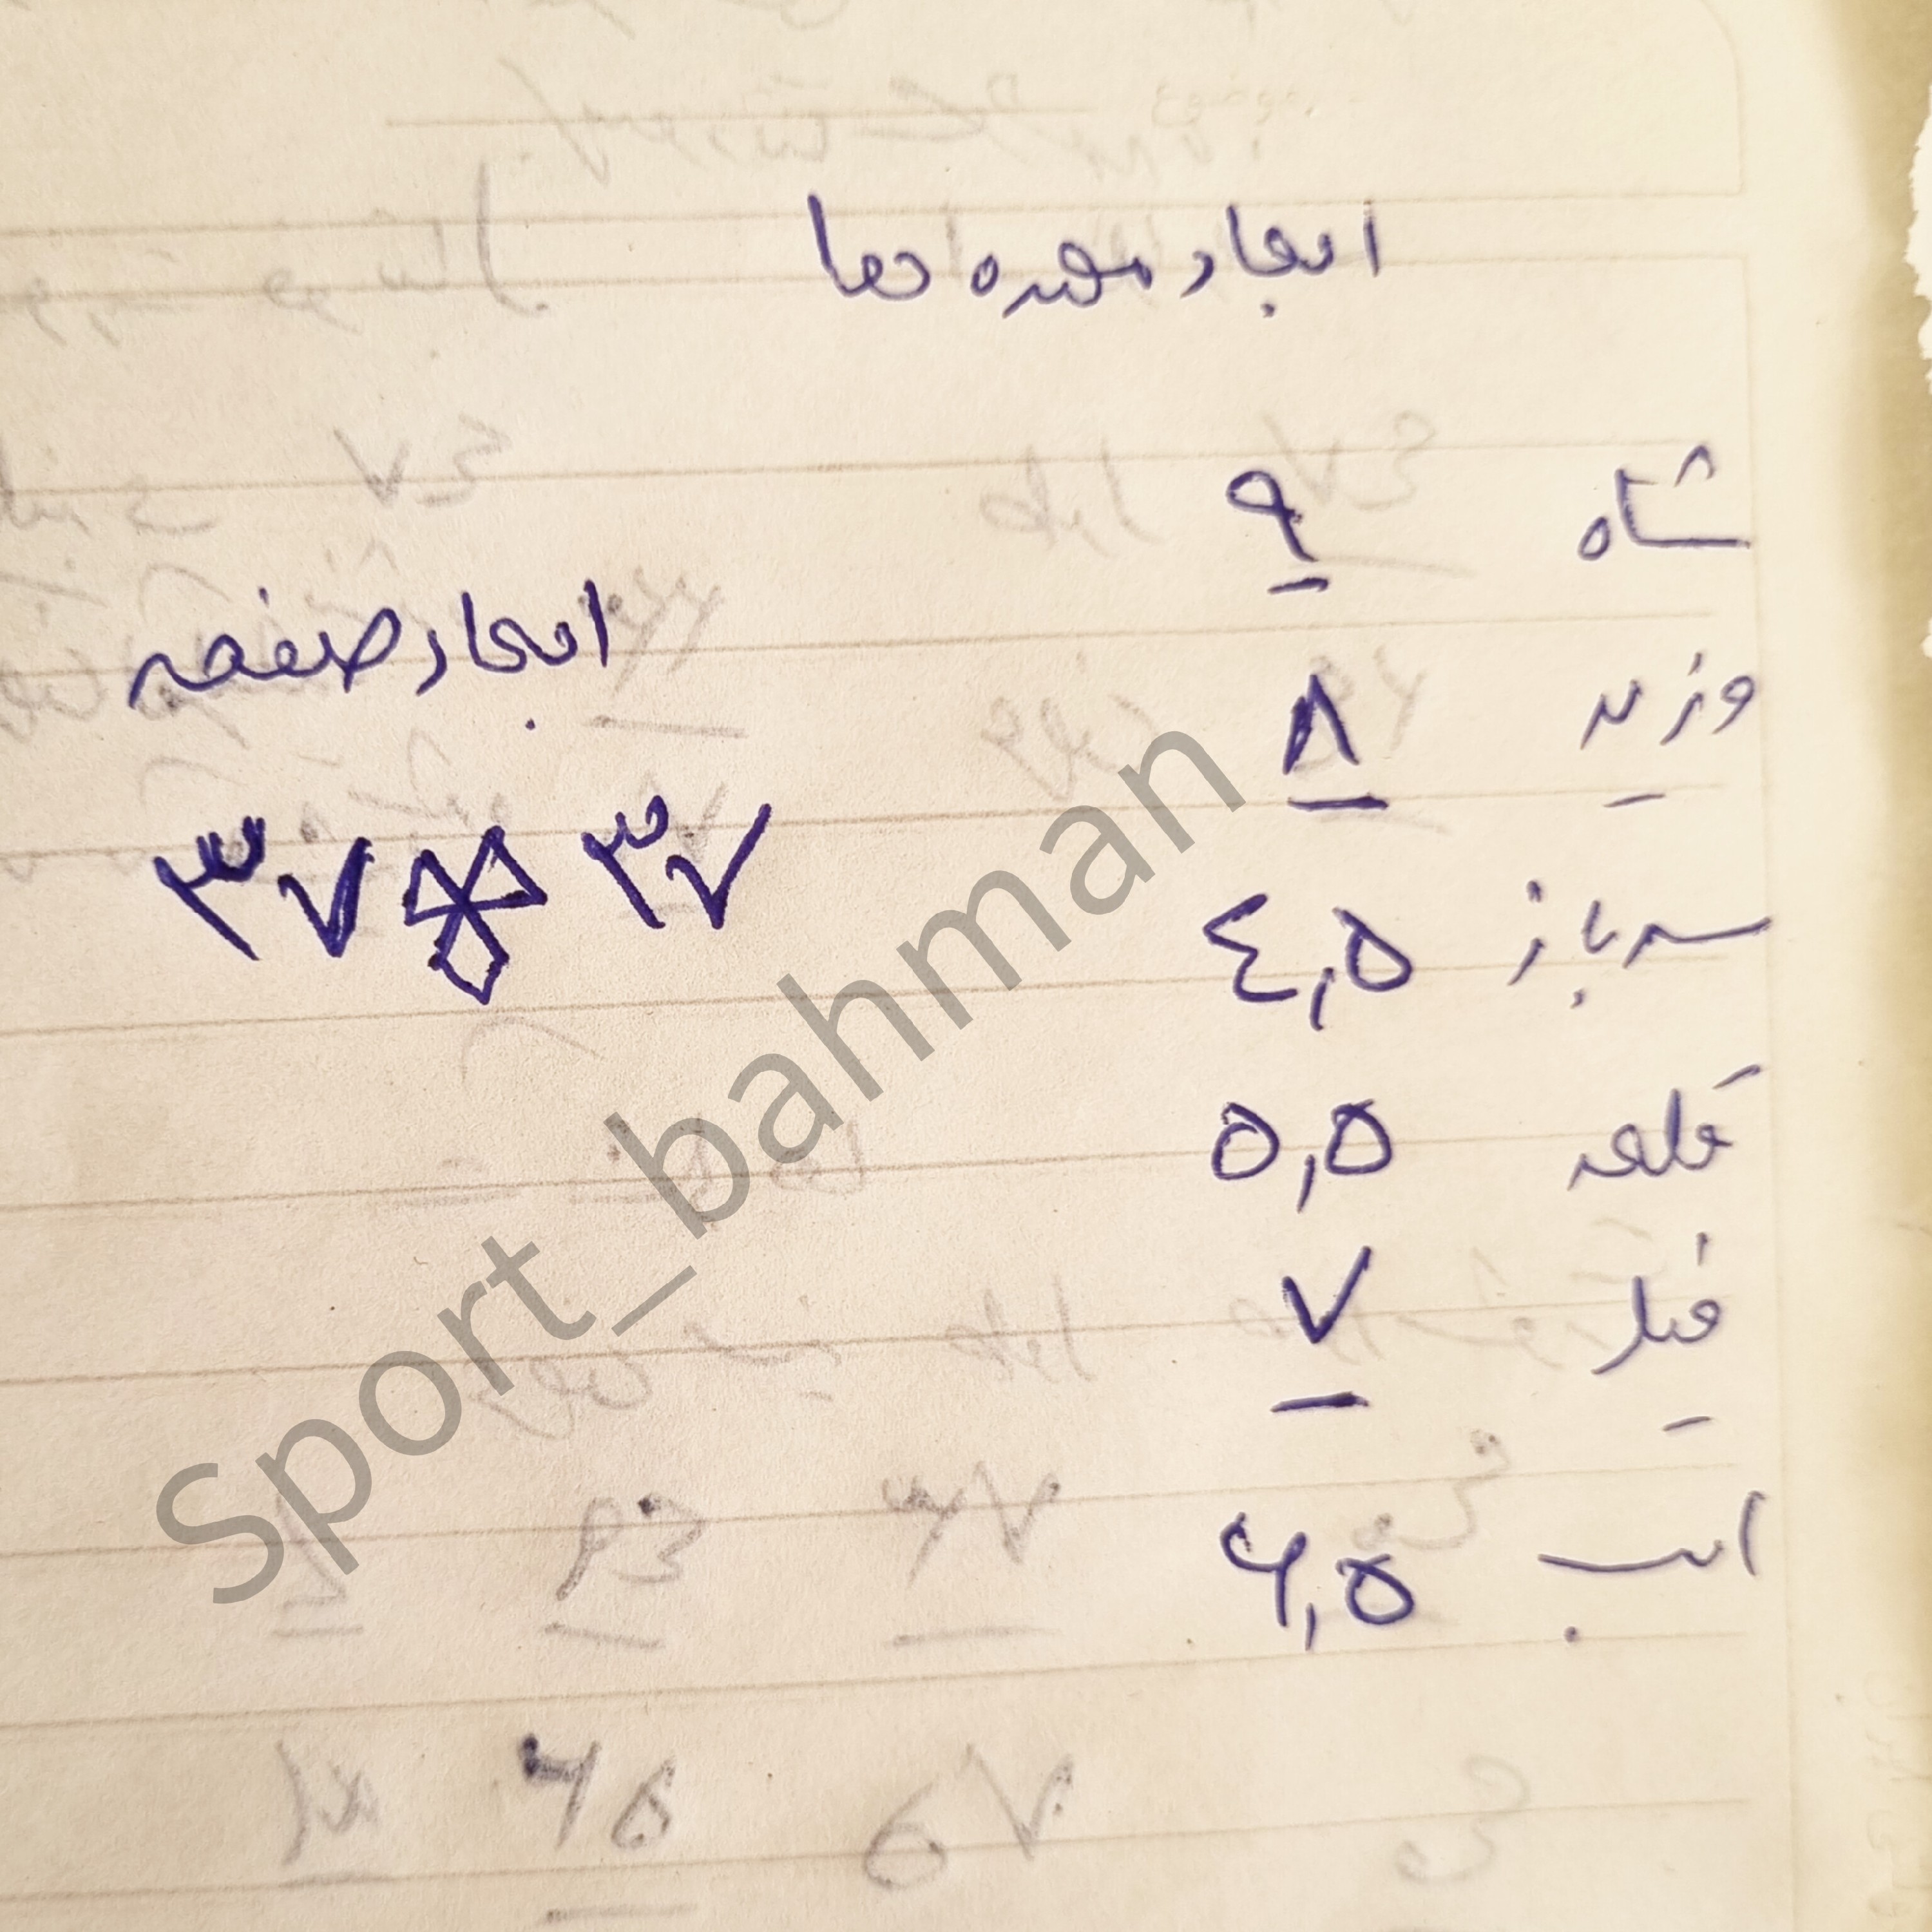 ابعاد مهره ها
شاه ۹
وزیر ۸
سرباز ٤,۵
قلعه ۵,۵
فیل ۷
اسب ۶,۵
ابعاد صفحه
۳۷ * ۳۷
Sport_bahman